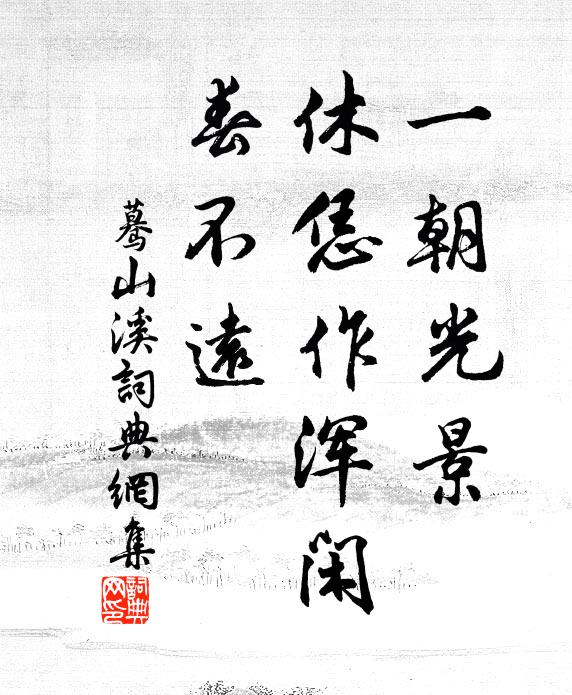 一朝光景
休恁作浑閑
春不遠
驀山溪詞典網集
詞典
网印